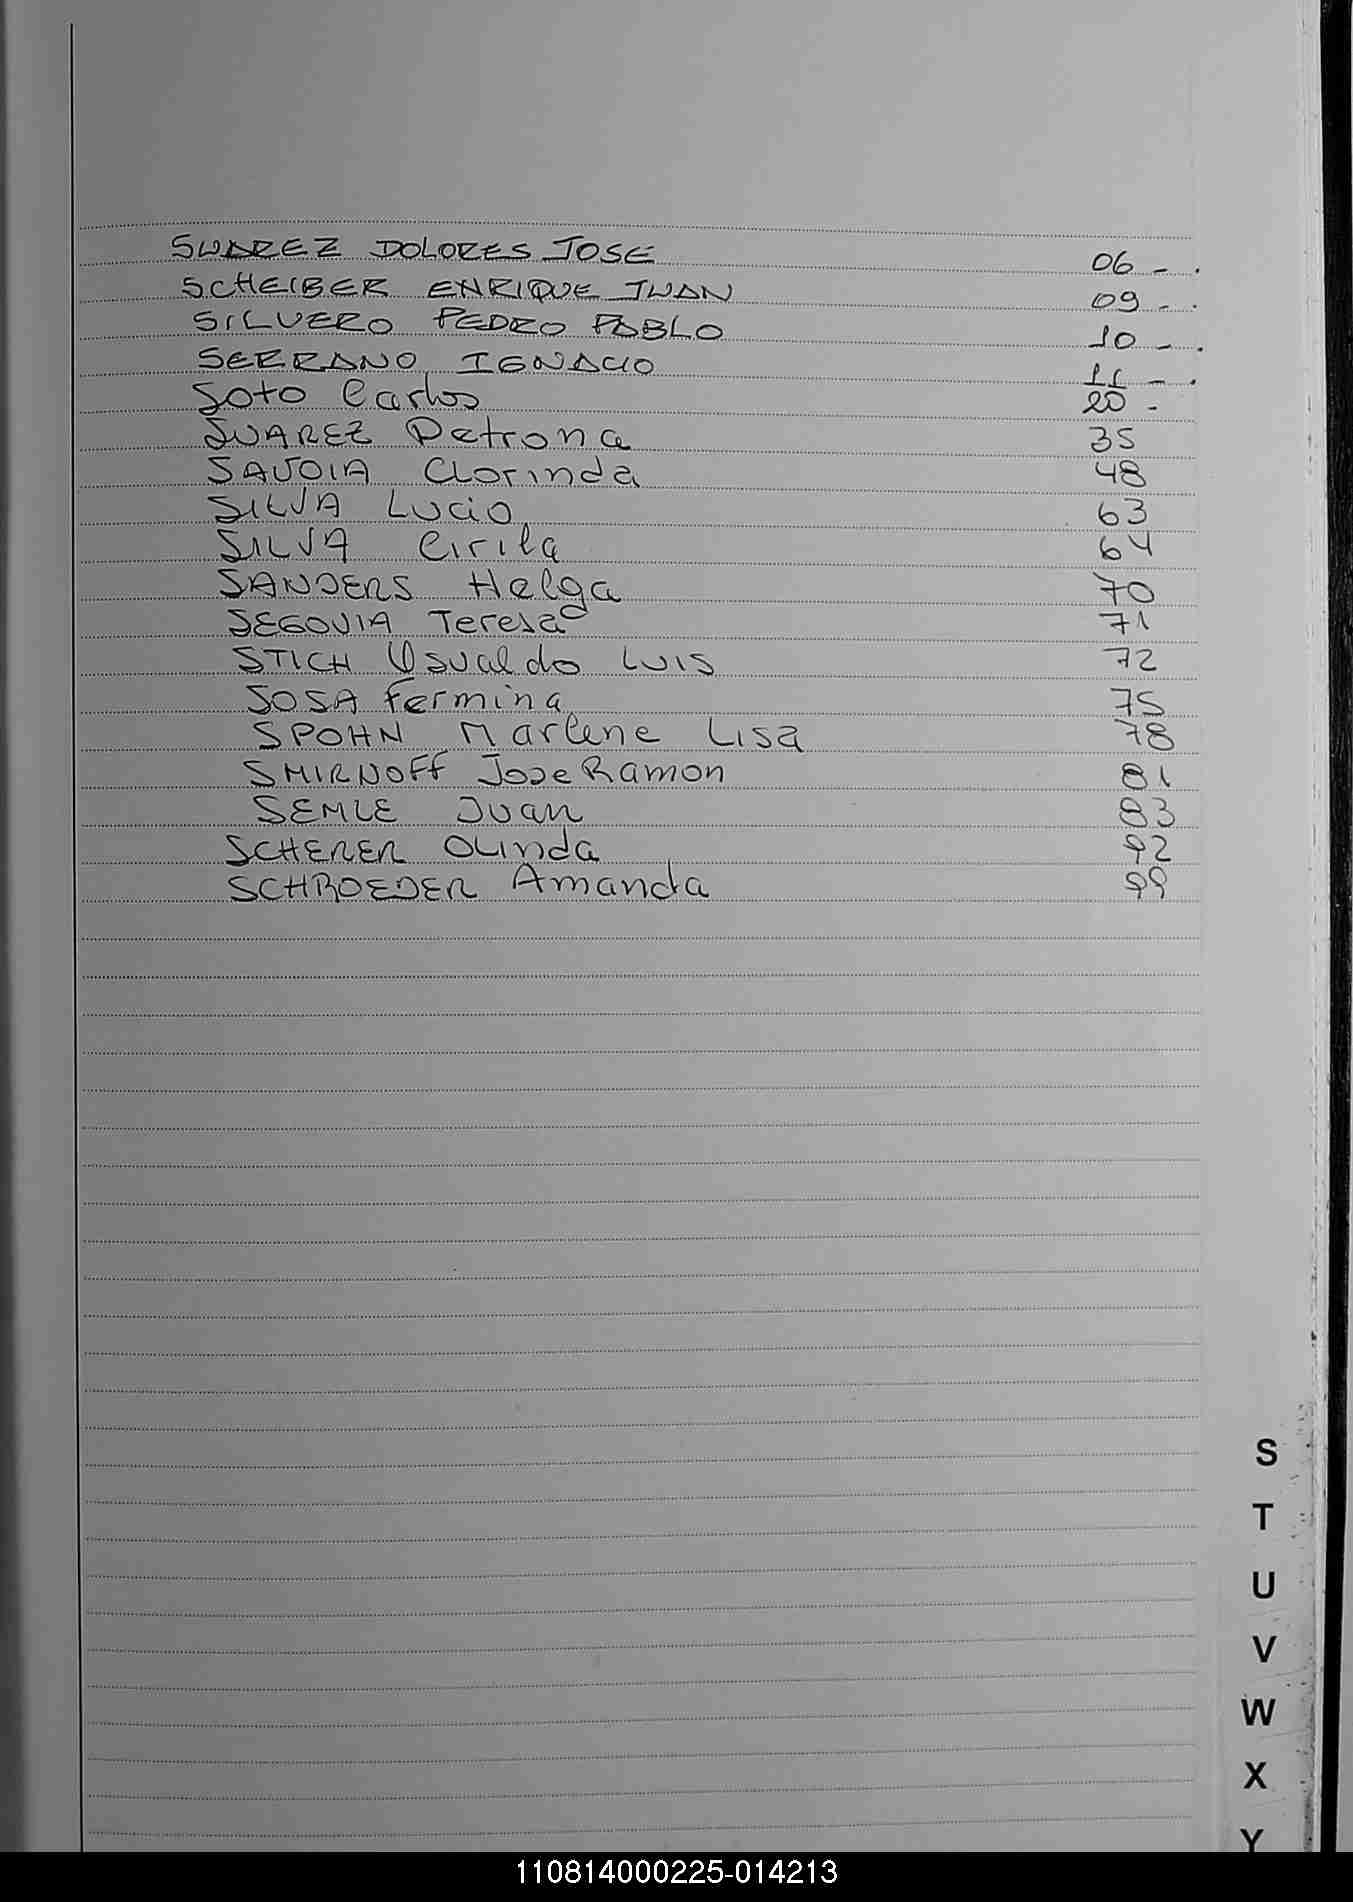 SUAREZ DOLORES JOSE 06 - .
SCHEIBER ENRIQUE JUAN 09 - .
SILVERO PEDRO PABLO 10 - .
SERRANO IGNACIO 11 - .
SOTO Carlos 20 -
SUAREZ Petrona 35
SAVOIA Clorinda 48
SILVA Lucio 63
SILVA Cirila 64
SANDERS Helga 70
SEGOVIA Teresa 71
STICH Osvaldo LUIS 72
SOSA Fermina 75
SPOHN Marlene Lisa 78
SMIRNOFF Jose Ramon 81
SEMLE Juan 83
SCHERER OLinda 92
SCHROEDER Amanda 99
S
T
U
V
W
X
Y
110814000225-014213